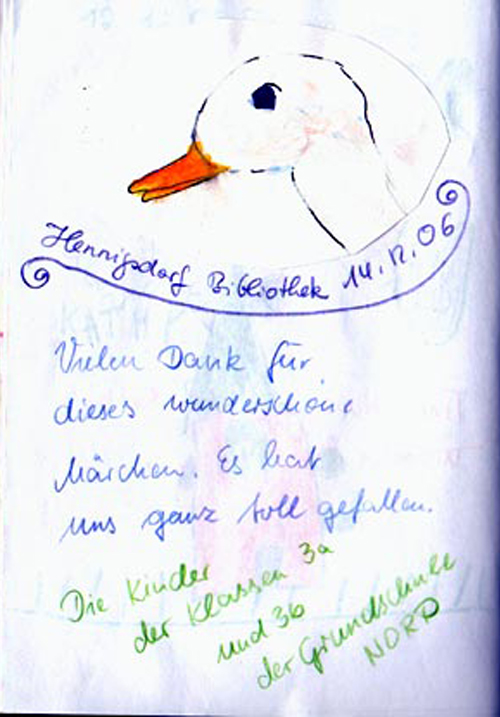 Hennigsdorf Bibliothek 14.12.06
Vielen Dank für
dieses wunderschöne
Märchen. Es hat
uns ganz toll gefallen.
Die Kinder
der Klassen 3a
und 3b
der Grundschule
NORD